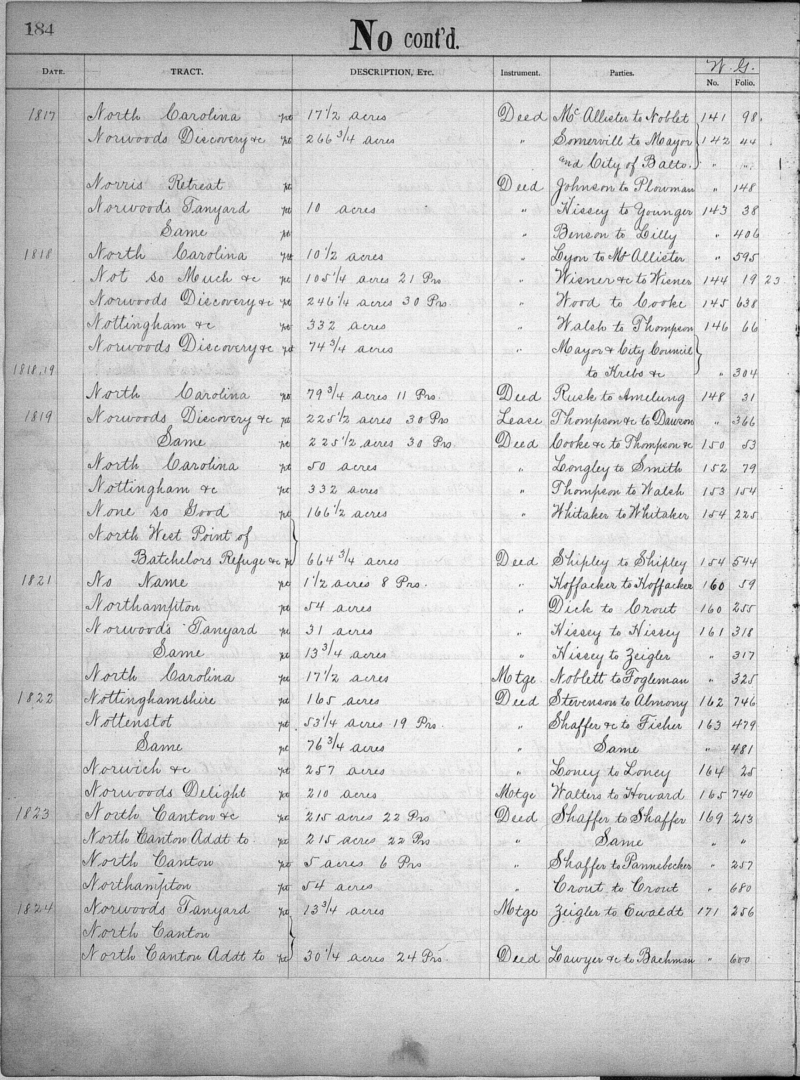 184
No cont'd.
DATE. TRACT. DESCRIPTION, ETC. Instrument. Parties. W. G.
No. Folio.
1817 North Carolina pt 17 1/2 acres Deed McAllister to Noblet 141 98
Norwoods Discovery &c pt 266 3/4 acres " Somervill to Mayor 142 44
and City of Balto. " "
Norris Retreat pt Deed Johnson to Plowman " 148
Norwoods Tanyard pt 10 acres " Hissey to Younger 143 38
Same pt " Benson to Lilly " 406
1818 North Carolina pt 10 1/2 acres " Lyon to McAllister " 595
Not so Much &c pt 105 1/4 acres 21 Prs. " Wisner &c to Wisner 144 19 23
Norwoods Discovery &c pt 246 1/4 acres 30 Prs. " Wood to Cooke 145 638
Nottingham &c pt 332 acres " Walsh to Thompson 146 66
Norwoods Discovery &c pt 74 3/4 acres " Mayor & City Council
1818,19 to Krebs &c " 304
North Carolina pt 79 3/4 acres 11 Prs. Deed Rusk to Amelung 148 31
1819 Norwoods Discovery &c pt 225 1/2 acres 30 Prs Lease Thompson &c to Dawson " 366
Same pt 225 1/2 acres 30 Prs. Deed Cooke &c to Thompson &c 150 53
North Carolina pt 50 acres " Longley to Smith 152 79
Nottingham &c pt 332 acres " Thompson to Walsh 153 154
None so Good pt 166 1/2 acres " Whitaker to Whitaker 154 225
North West Point of
Batchelors Refuge &c pt 664 3/4 acres Deed Shipley to Shipley 154 544
1821 No Name pt 1 1/2 acres 8 Prs. " Hoffacker to Hoffacker 160 59
Northampton pt 54 acres " Dick to Crout 160 255
Norwoods Tanyard pt 31 acres " Hissey to Hissey 161 318
Same pt 13 3/4 acres " Hissey to Zeigler " 317
North Carolina pt 17 1/2 acres Mtge Noblett to Fogleman " 325
1822 Nottinghamshire pt 165 acres Deed Stevenson to Almony 162 746
Nottenstot pt 53 1/4 acres 19 Prs. " Shaffer &c to Fisher 163 479
Same pt 76 3/4 acres " Same " 481
Norwich &c pt 257 acres " Loney to Loney 164 25
Norwoods Delight pt 210 acres Mtge Walters to Howard 165 740
1823 North Canton &c pt 215 acres 22 Prs Deed Shaffer to Shaffer 169 213
North Canton Addt to pt 215 acres 22 Prs " Same " "
North Canton pt 5 acres 6 Prs " Shaffer to Pannebecker " 257
Northampton pt 54 acres " Crout to Crout " 680
1824 Norwoods Tanyard pt 13 3/4 acres Mtge Zeigler to Ewaldt 171 256
North Canton
North Canton Addt to pt 30 1/4 acres 24 Prs. Deed Lawyer &c to Bachman " 600